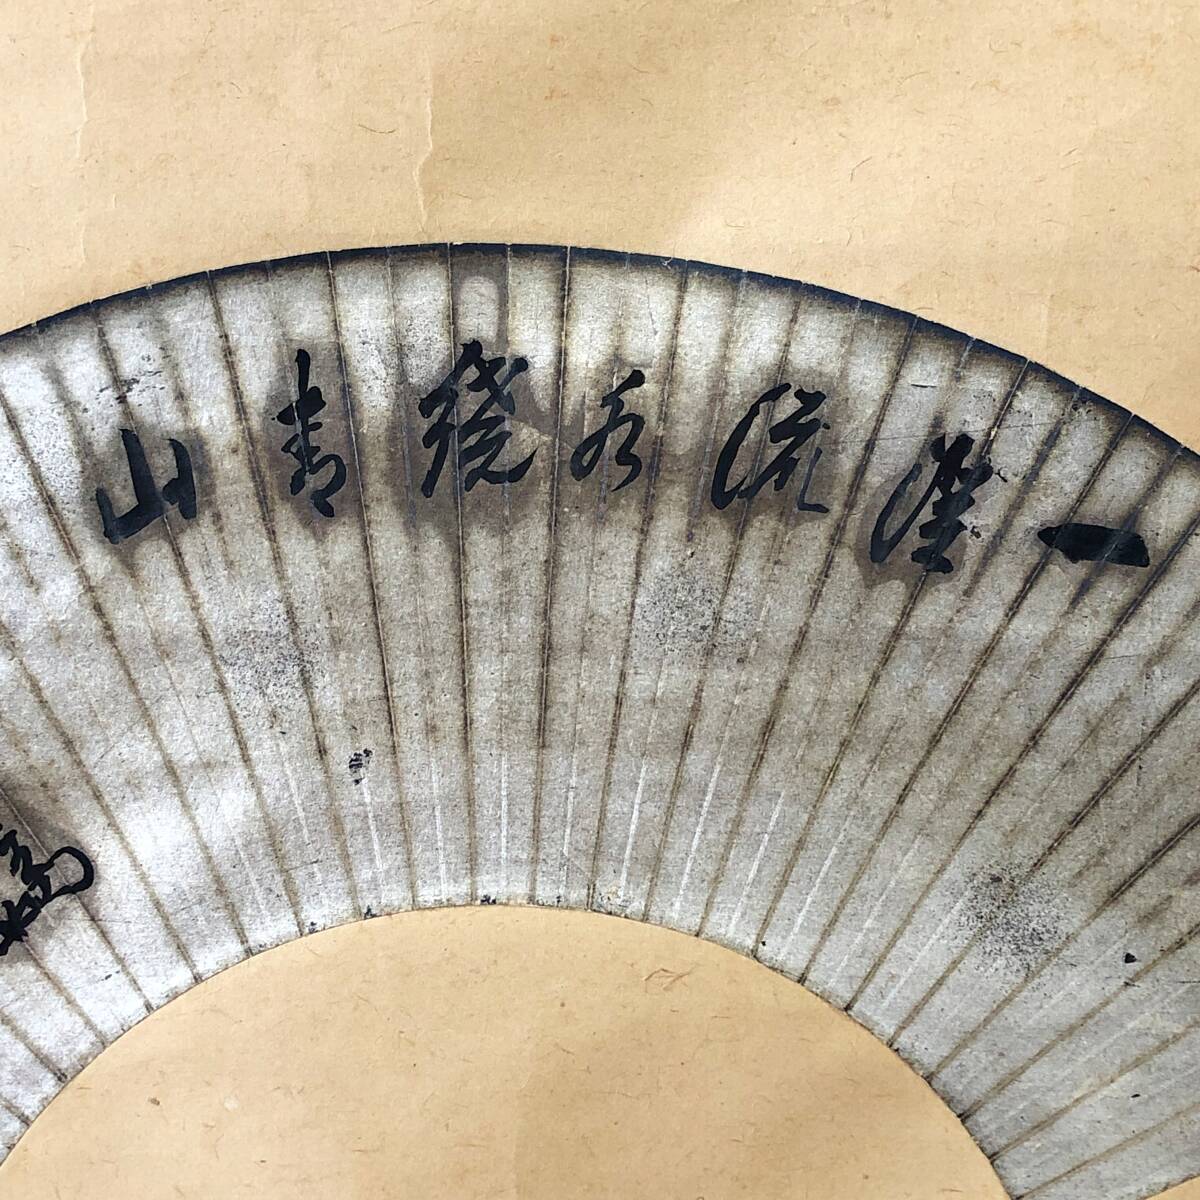 一溪流水繞青山